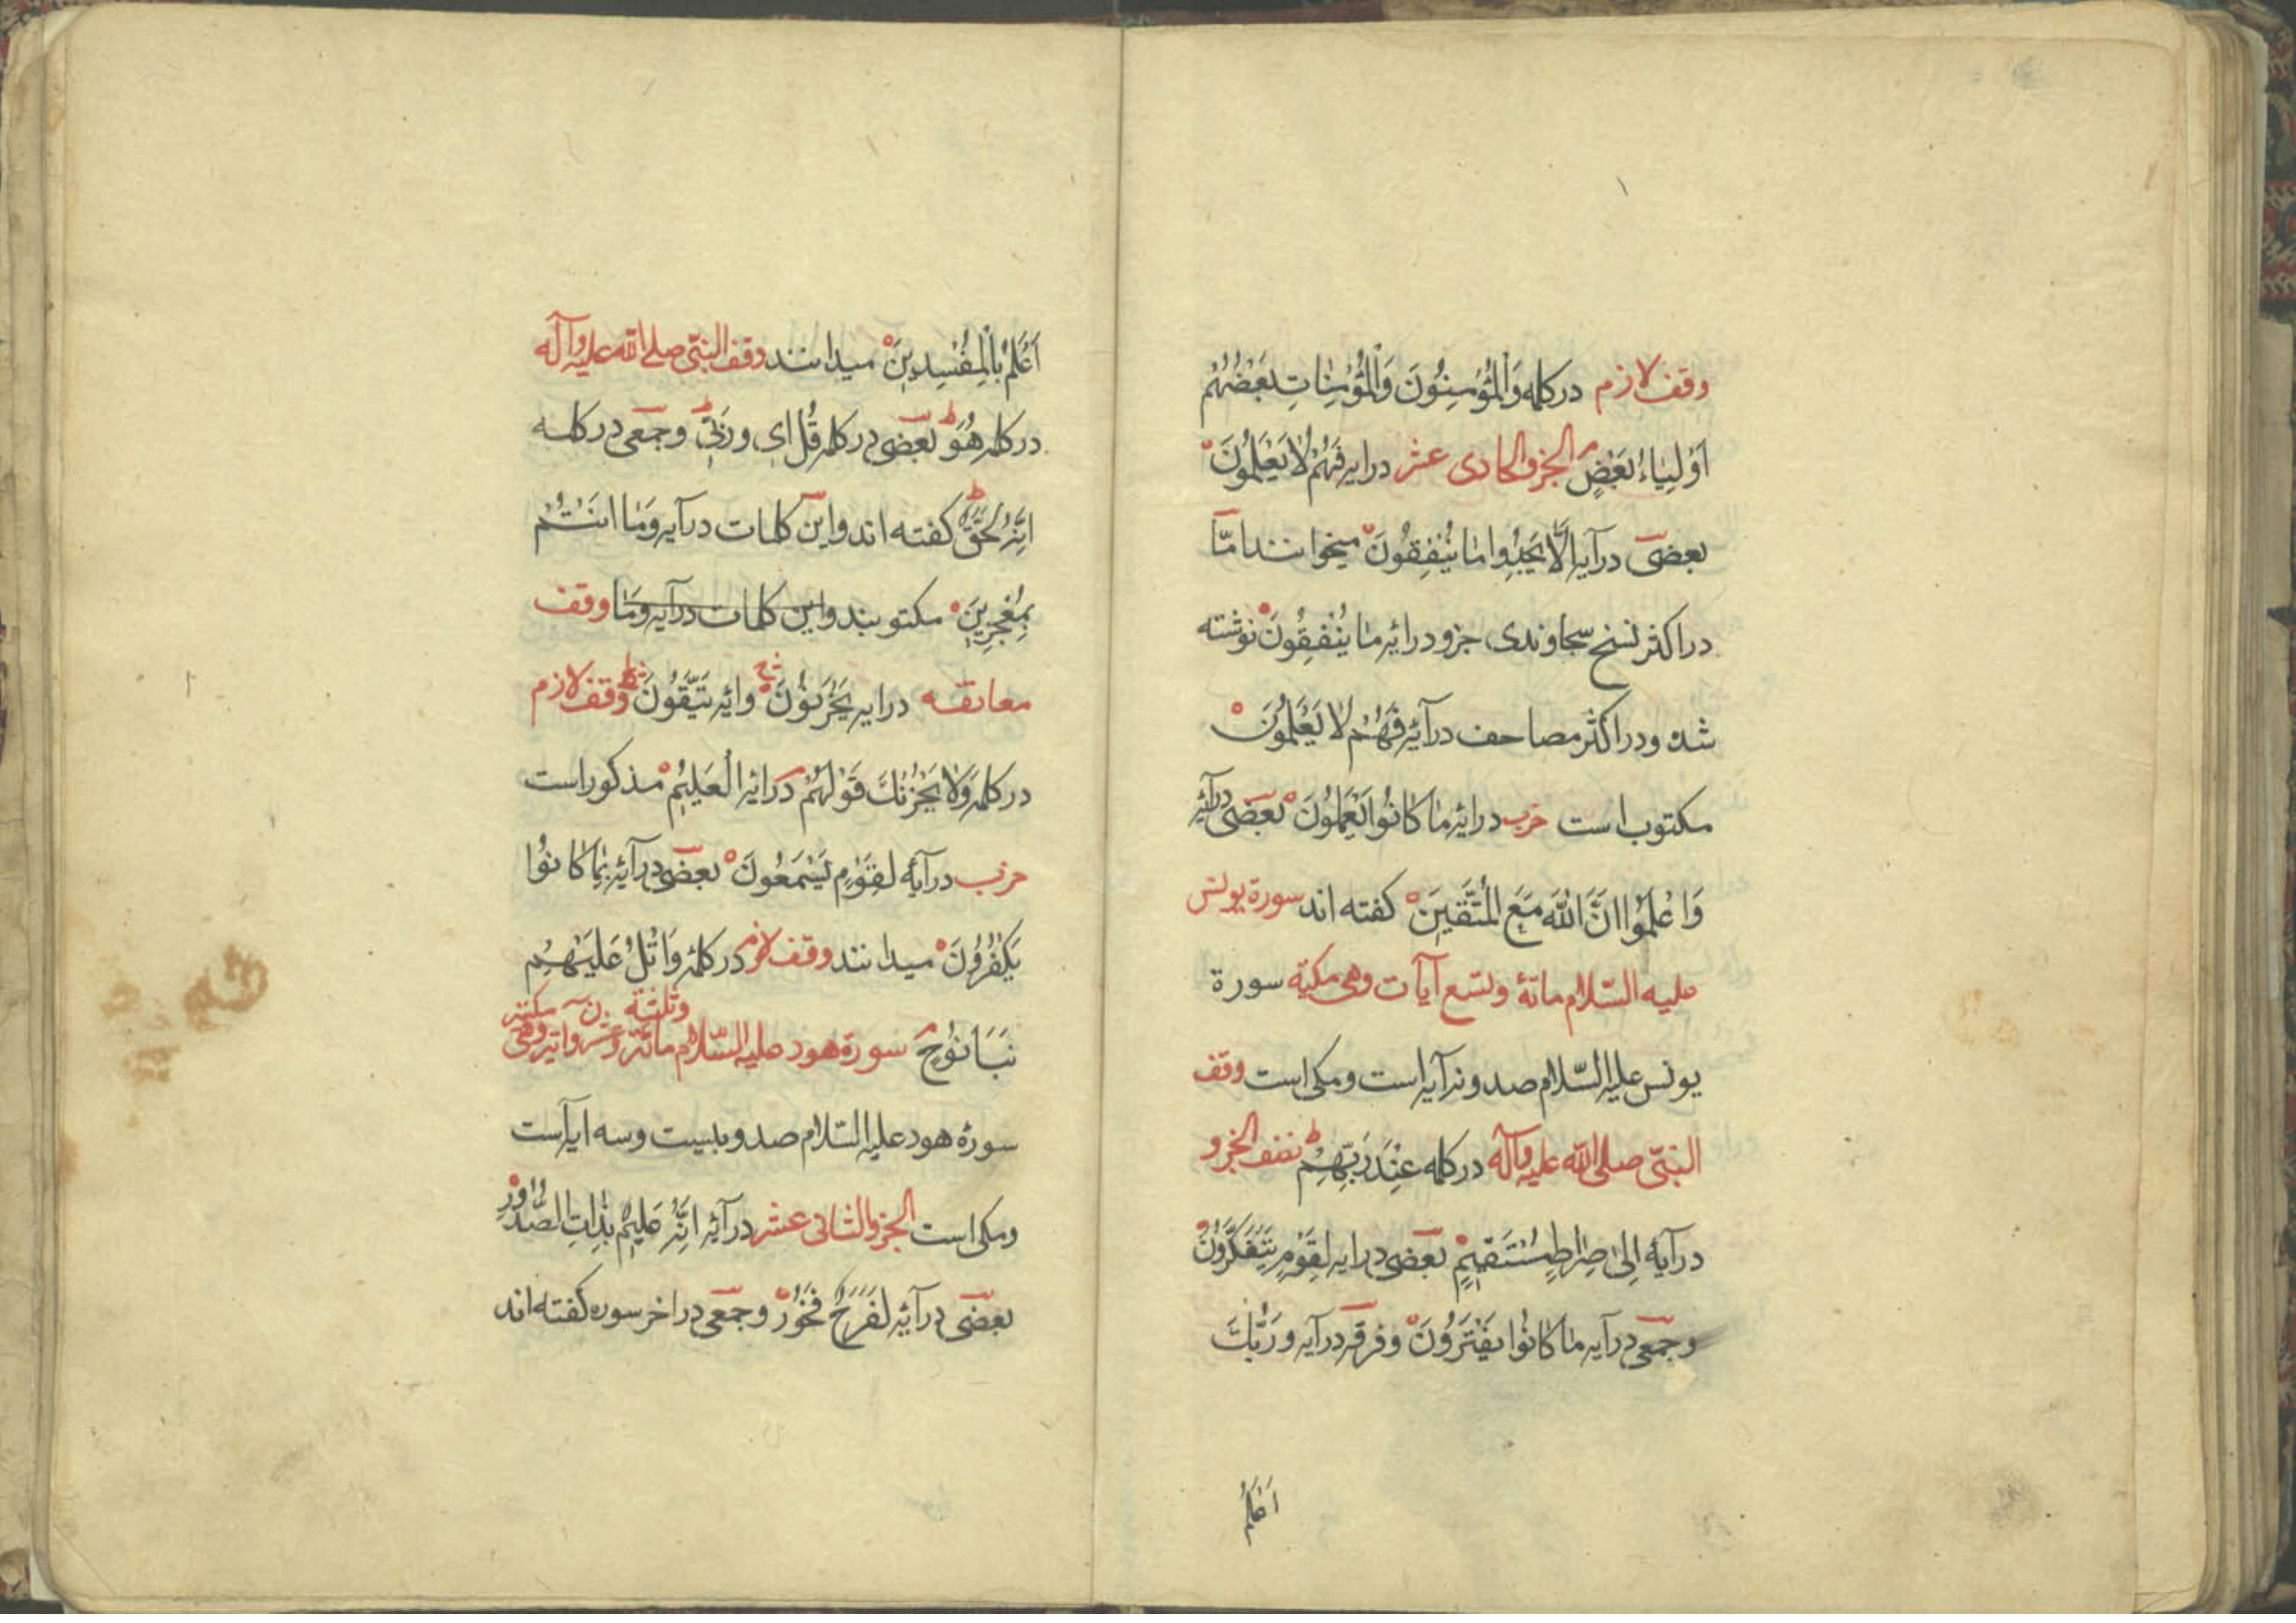 وقف لازم درکلمه وَالْمُؤْمِنُونَ وَالْمُؤْمِنَاتِ بَعْضُهُمْ
اَوْلِيَاءُ بَعْضٍ الجزو الحادی عشر درایه فَهُمْ لَا يَعْلَمُونَ
بعضی درآیه اَلَّا يَجِدُوا مَا يُنْفِقُونَ میخوانند امّا
دراکثر نسخ سجاوندی جزو درایهٔ مَا يُنْفِقُونَ نوشته
شده ودراکثر مصاحف درآیهٔ فَهُمْ لَا يَعْلَمُونَ
مکتوب است حزب درایهٔ مَا كَانُوا يَعْمَلُونَ بعضی درآیهٔ
وَاعْلَمُوا اَنَّ اللهَ مَعَ الْمُتَّقِينَ کفته اند سورة یونس
علیه السّلام مائة وتسع آیات وهی مکیّة سورة
یونس علیه السّلام صدونه آیه است ومکی است وقف
النبیّ صلی الله علیه وآله درکلمه عِنْدَ رَبِّهِمْ نصف الجزو
درآیهٔ اِلىٰ صِرَاطٍ مُسْتَقِيمٍ بعضی درایه لِقَوْمٍ يَتَفَكَّرُونَ
وجمعی درآیه مَا كَانُوا يَفْتَرُونَ وفرقه درآیه وَرَبُّكَ
اَعْلَمُ
اَعْلَمُ بِالْمُفْسِدِينَ میدانند وقف النبیّ صلی الله علیه وآله
درکلمه هُوَ بعضی درکلمه قُلْ اِی وَرَبِّی وجمعی درکلمه
اِنَّهُ لَحَقٌّ کفته اند واین کلمات درآیه وَمَا اَنْتُمْ
بِمُعْجِزِينَ مکتوبند واین کلمات درآیه وَمَا وقف
معانقه درایه يَحْزَنُونَ وایهٔ يَتَّقُونَ وقف لازم
درکلمه وَلَا يَحْزُنْكَ قَوْلُهُمْ درایهٔ الْعَلِيمُ مذکور است
حزب درآیهٔ لِقَوْمٍ يَسْمَعُونَ بعضی درآیهٔ بِمَا كَانُوا
يَكْفُرُونَ میدانند وقف لازم درکلمهٔ وَاتْلُ عَلَيْهِمْ
نَبَأَ نُوحٍ سورة هود علیه السّلام مائة وعشرون وثلثة آیة وهی مکیّة
سورهٔ هود علیه السّلام صدوبیست وسه ایه است
ومکی است الجزو الثانی عشر درآیهٔ اِنَّهُ عَلِيمٌ بِذَاتِ الصُّدُورِ
بعضی درآیهٔ لَفَرِحٌ فَخُورٌ وجمعی دراخر سوره کفته اند